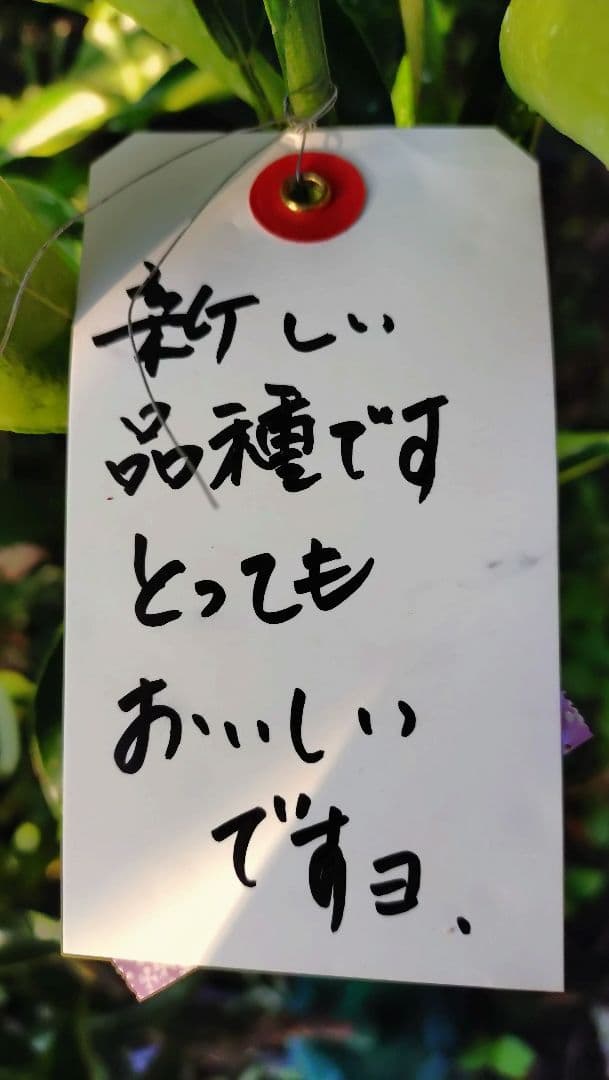 新しい
品種です
とっても
おいしい
ですヨ、